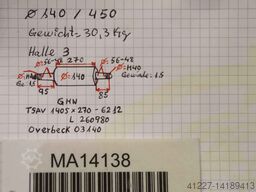 Ø 140 / 450
Gewicht- 30,3 Kg
Halle 3
Ø:56-48
270
Ø:56-48
M40
Ø:140
M40
Gewinde: 1.5
95
85
GMN
TSAV 140s x 270 - 6212
L 260980
Overbeck 03140
MA14138
41227-14189413